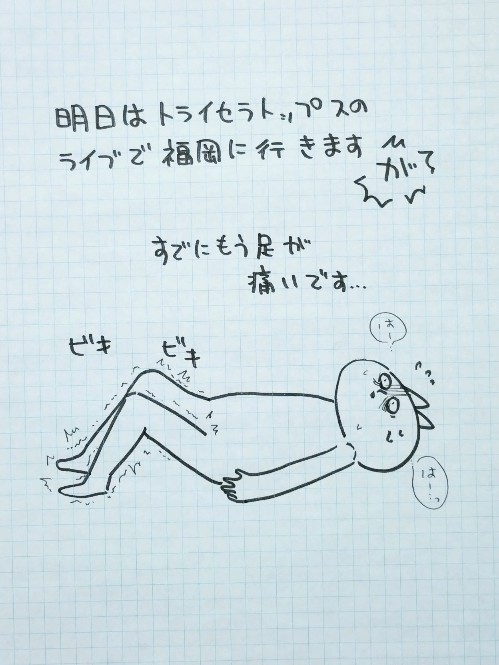 明日はトライセラトップスの
ライブで福岡に行きます
が
すでにもう足が
痛いです...
ビキ
ビキ
はー
はーっ